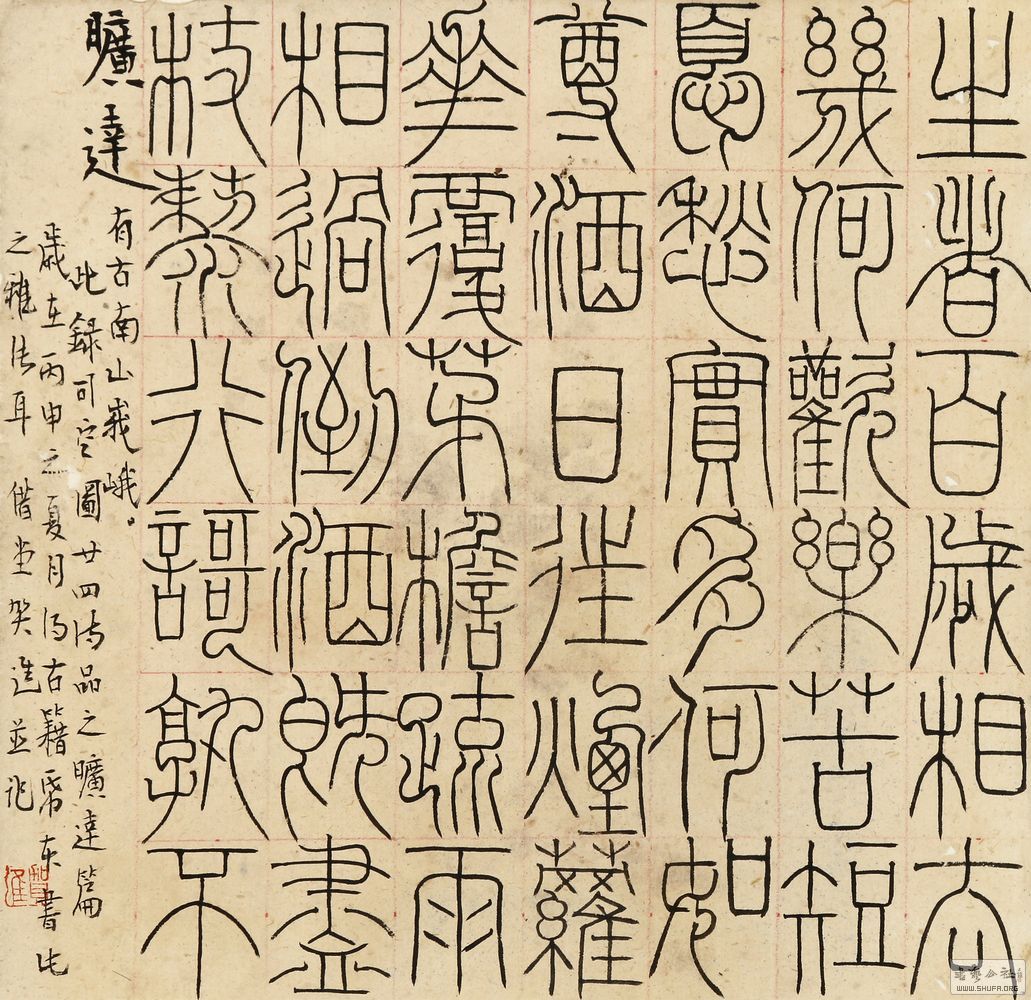 生者百歲相去
幾何觀樂苦短
憂愁實多何如
尊酒日往煙蘿
花覆茅檐疏雨
相過倒酒既盡
杖藜行謌孰不
曠達
有古南山峩峨
此錄司空圖廿四詩品之曠達篇
歲在丙申之夏月得古籍紙來書此
之雅